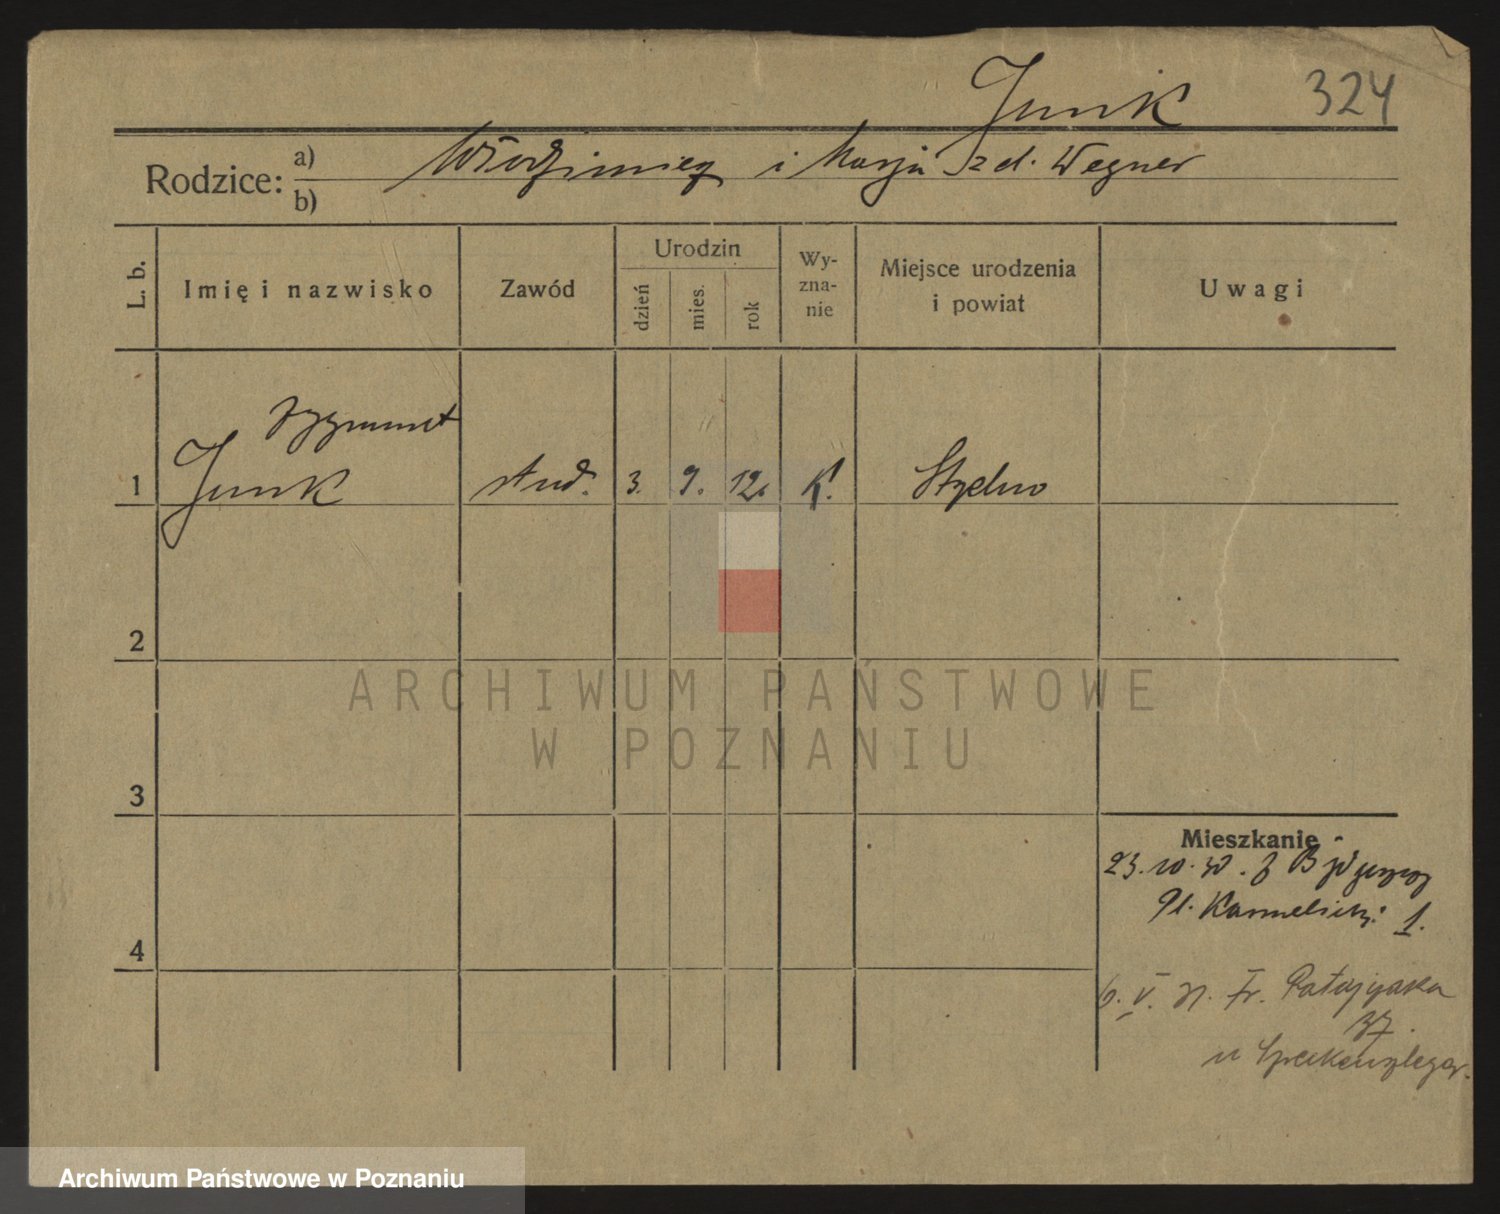 Junk 324
Rodzice: a) Włodzimierz i Marja z d. Wegner
b)
L. b. Imię i nazwisko Zawód Urodzin dzień mies. rok Wy-zna-nie Miejsce urodzenia i powiat Uwagi
Zygmunt
1 Junk stud. 3. 9. 12. K.
2
ARCHIWUM PAŃSTWOWE
W POZNANIU
3
Mieszkanie
23.10.30. z Bydgoszczy
Pl. Karmelicki 1.
4
6. V. Fr. Ratajczaka
37.
u
Archiwum Państwowe w Poznaniu